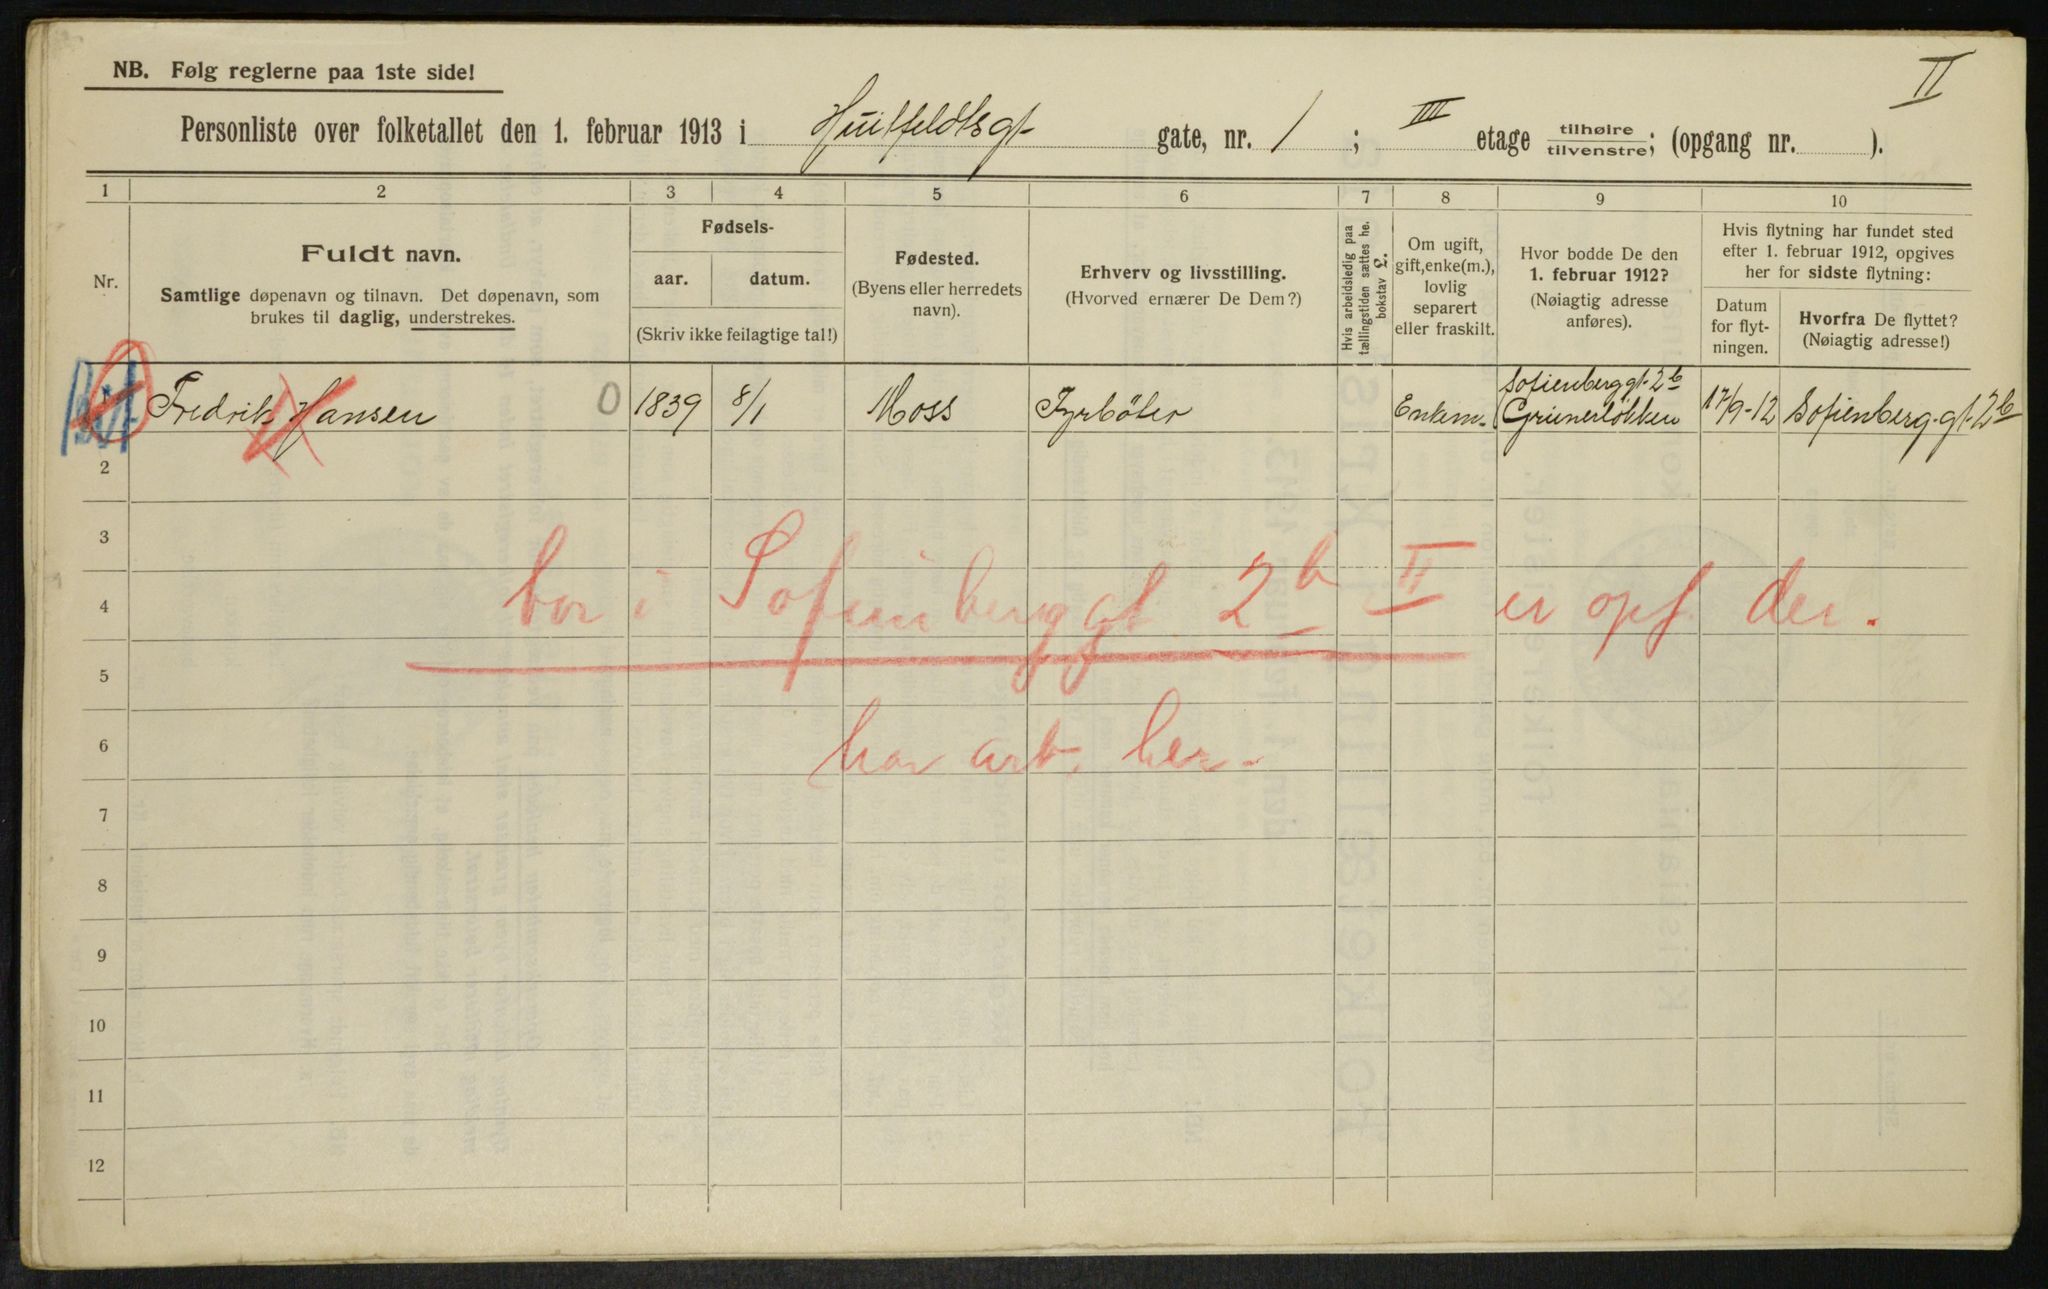 NB. Følg reglerne paa 1ste side!
II
Personliste over folketallet den 1. februar 1913 i Huitfeldtsgt gate, nr. 1 ; III etage tilhøire tilvenstre; (opgang nr. ).
1 2 3 4 5 6 7 8 9 10
Nr.
Fuldt navn.
Samtlige døpenavn og tilnavn. Det døpenavn, som
brukes til daglig, understrekes.
Fødsels-
aar. datum.
(Skriv ikke feilagtige tal!)
Fødested.
(Byens eller herredets
navn).
Erhverv og livsstilling.
(Hvorved ernærer De Dem?)
Hvis arbeidsledig paa
tællingstiden sættes he.
bokstav L.
Om ugift,
gift, enke(m.),
lovlig
separert
eller fraskilt.
Hvor bodde De den
1. februar 1912?
(Nøiagtig adresse
anføres).
Hvis flytning har fundet sted
efter 1. februar 1912, opgives
her for sidste flytning:
Datum
for flyt-
ningen.
Hvorfra De flyttet?
(Nøiagtig adresse!)
Sofienberggt. 2b
Fredrik Hansen 0 1839 8/1 Moss Fyrböter Enkem. Grünerløkken 17/9-12 Sofienberg.gt. 2b
2
3
bor i Sofienberggt 2b II er opf der.
4
5
har arb. her.
6
7
8
9
10
11
12